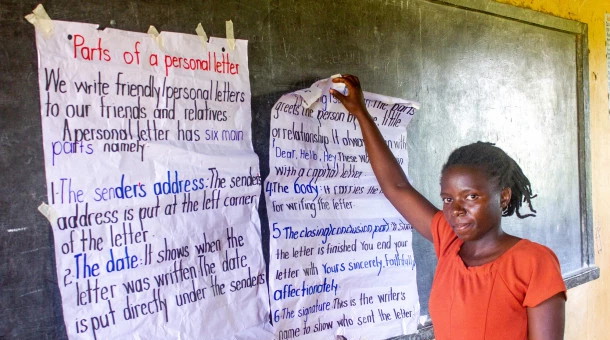 Parts of a personal letter
We write friendly/personal letters
to our friends and relatives
A personal letter has six main
parts namely
1-The senders address: The senders
address is put at the left corner
of the letter.
2.The date: It shows when the
letter was written The date
is put directly under the senders
is the parts
greets the person by the little
or relationship. It always
Dear, Hello, Hey These
with a capital letter
4.The body: It carries the
for writing the letter.
5.The closing/conclusion
the letter is finished You end your
letter with Yours sincerely, Faithfully,
affectionately.
6.The signature This is the writer's
name to show who sent the letter.